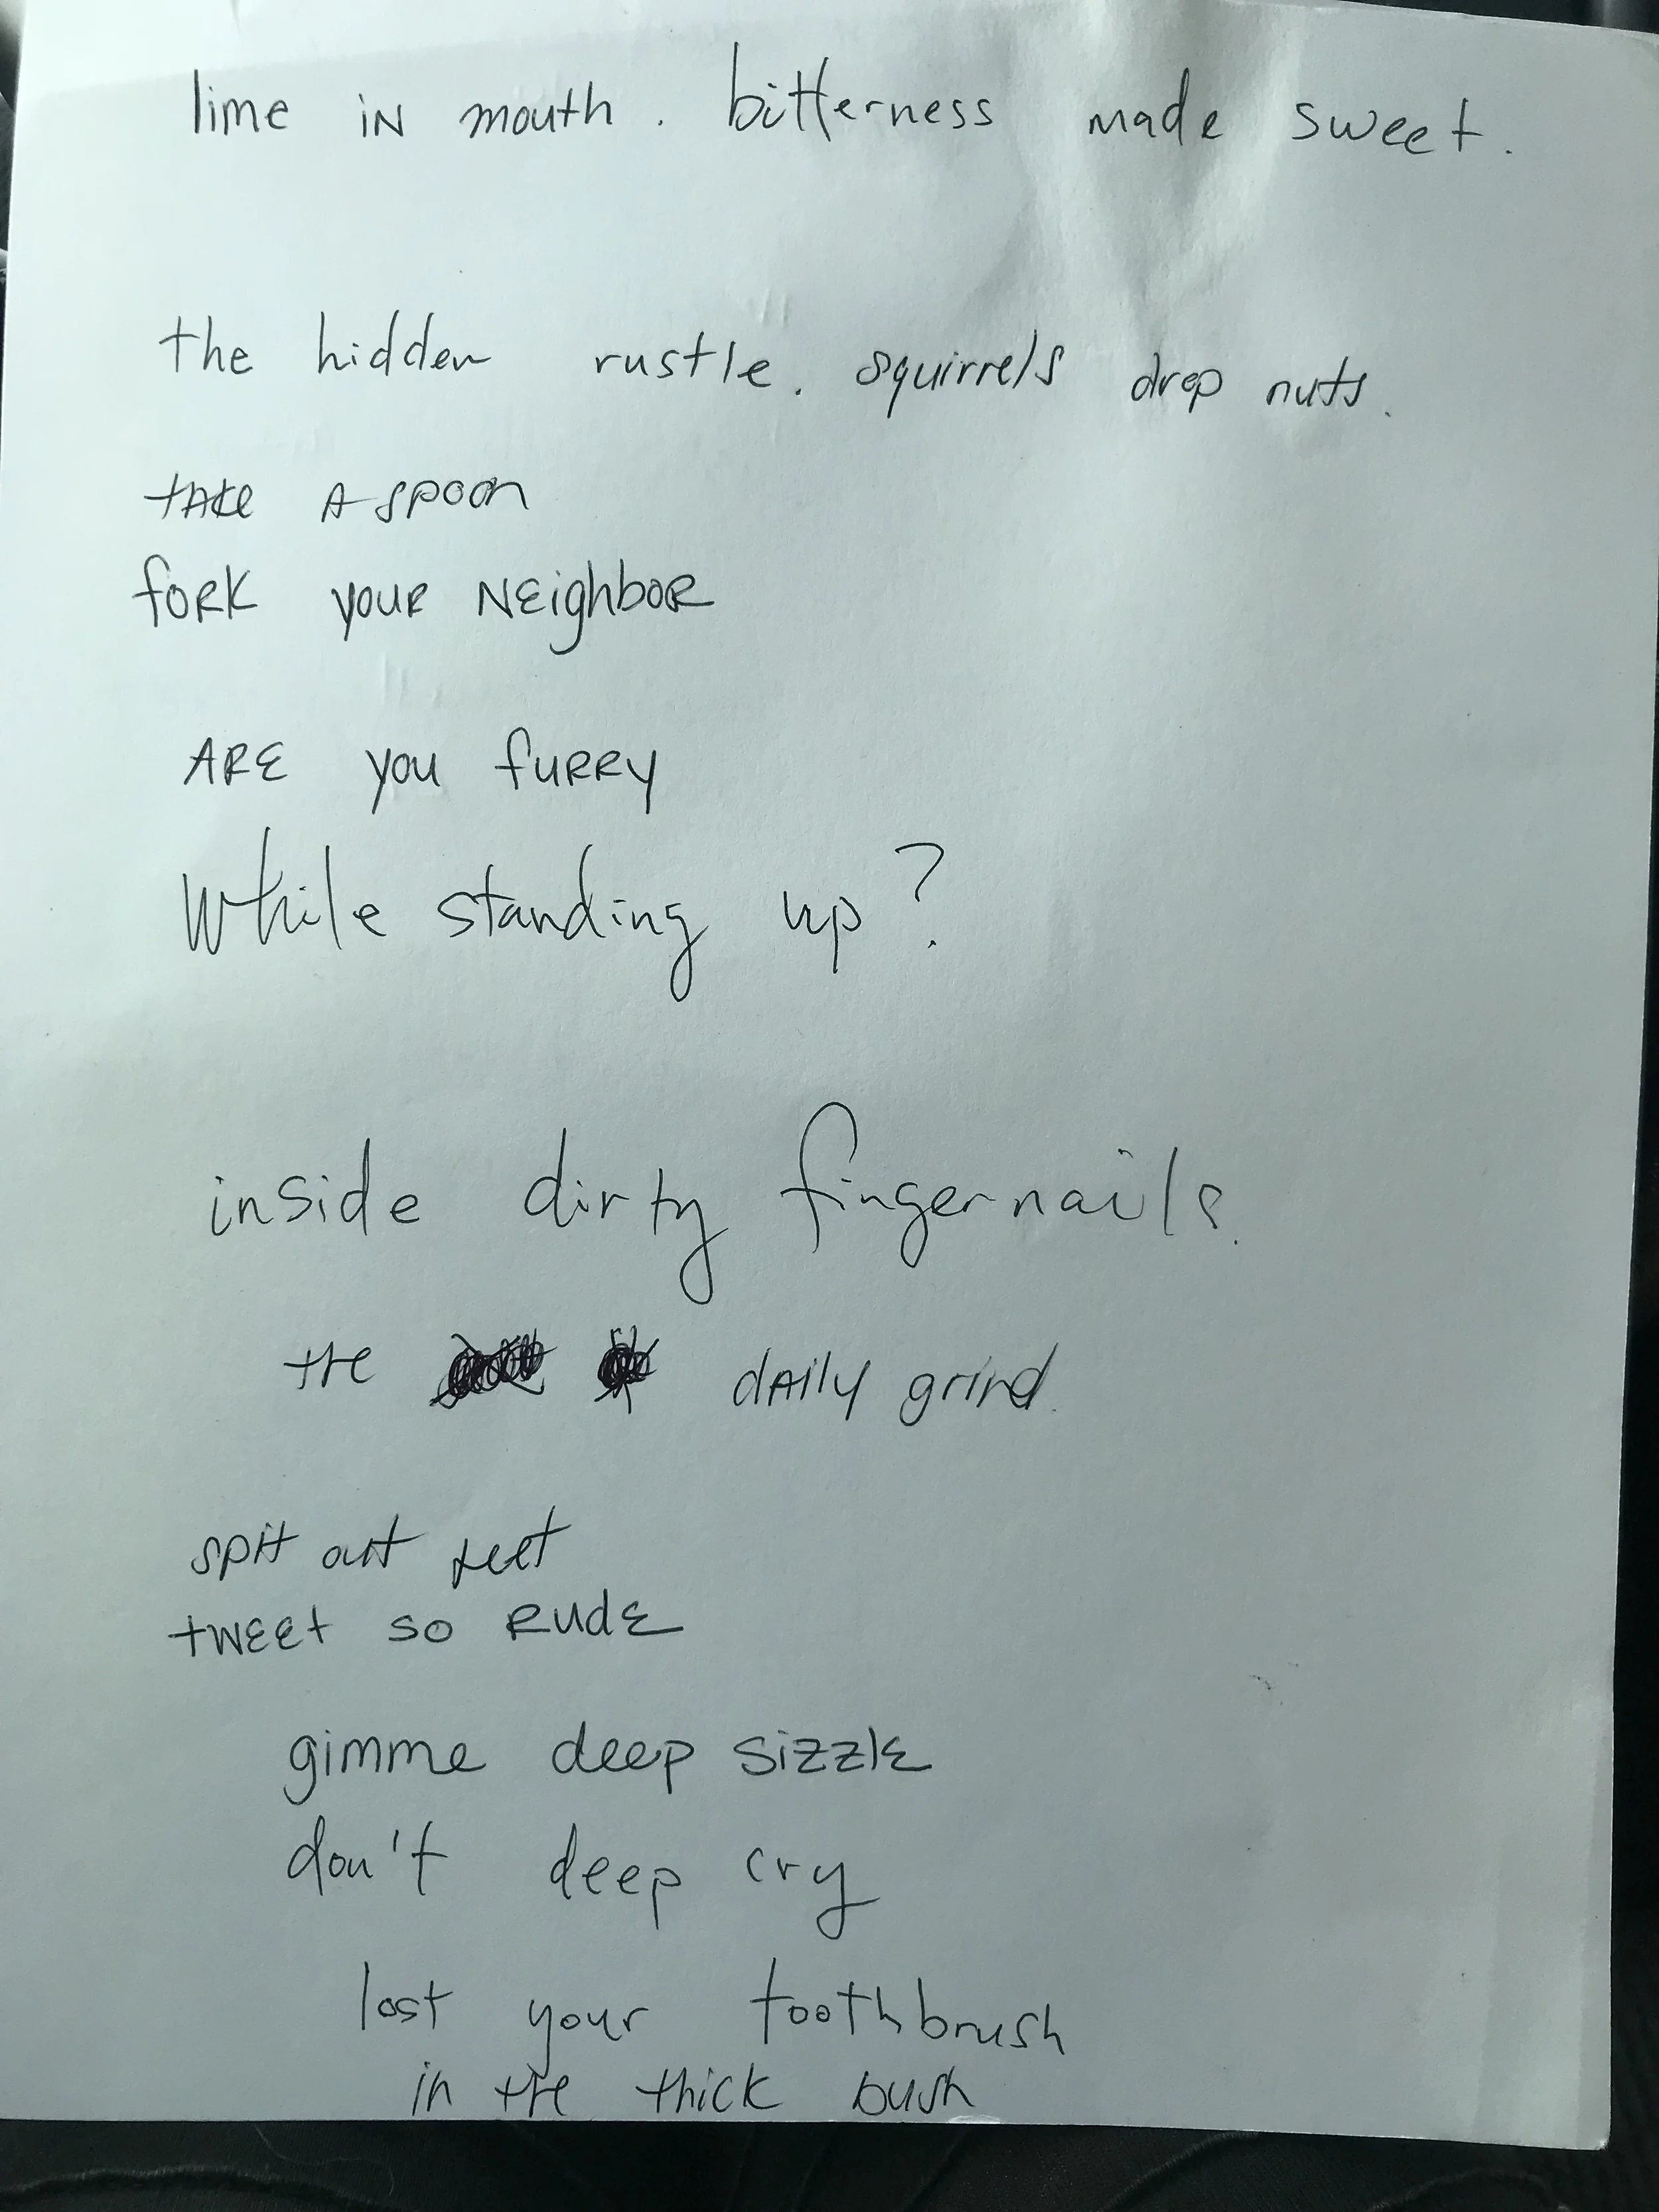 lime iN mouth. bitterness made sweet.
the hidden rustle. squirrels drop nuts.
tAke A spoon
fORK youR NEighboR
ARE you fuRRy
While standing up?
inside dirty fingernails.
tHe dAily grind.
spit out
tWEEt so RudE
gimme deep sizzlE
don't deep cry
lost your toothbrush
in tHe thick bush